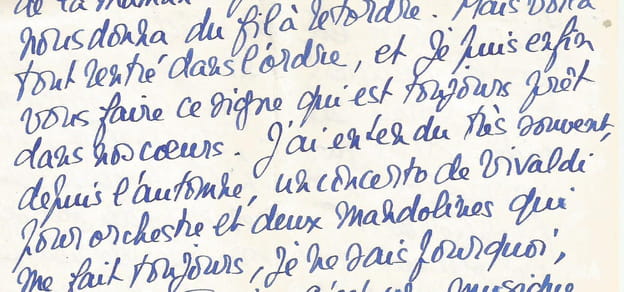 de la maman
nous donna du fil à retordre. Mais voilà
tout rentré dans l'ordre, et je puis enfin
vous faire ce signe qui est toujours prêt
dans nos cœurs. J'ai entendu très souvent,
depuis l'automne, un concerto de Vivaldi
pour orchestre et deux mandolines qui
me fait toujours, je ne sais pourquoi,
c'est une musique